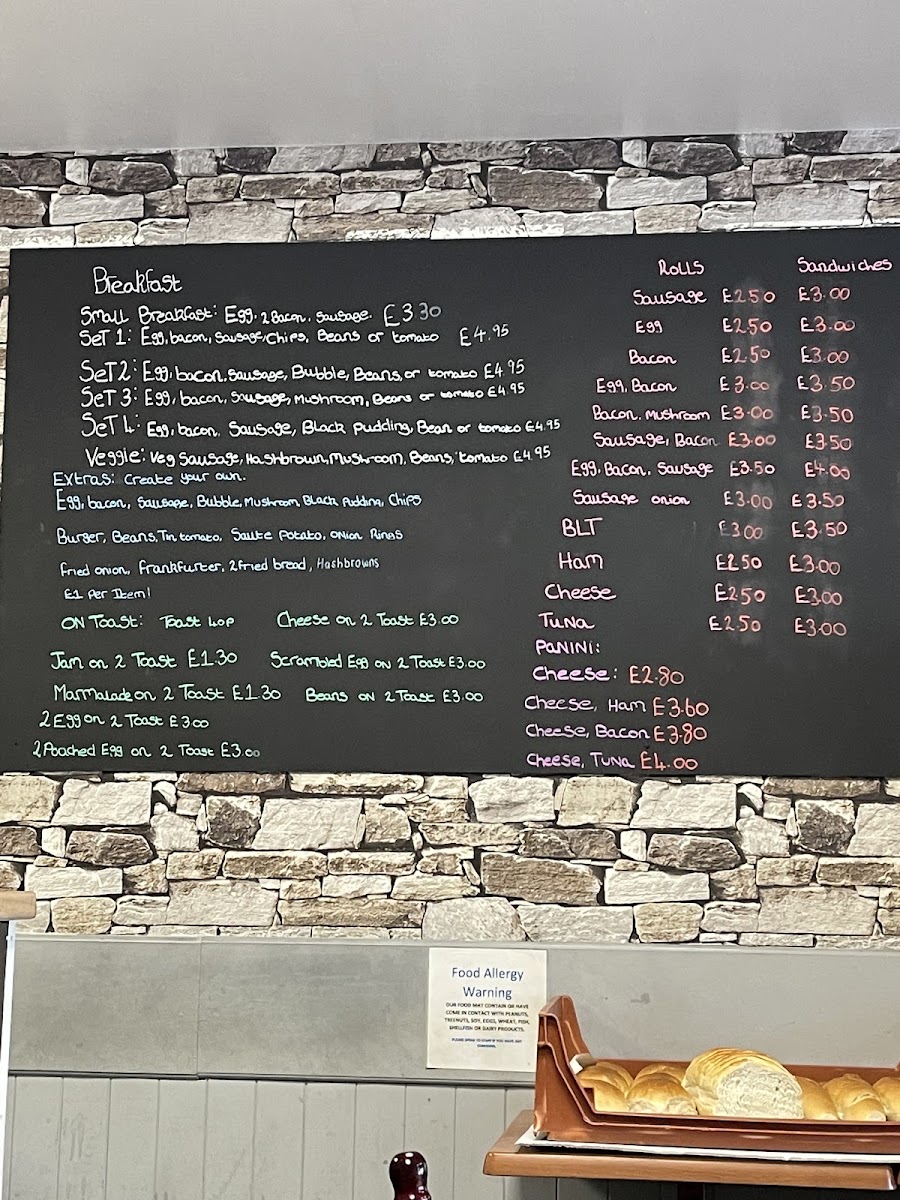 Breakfast
Small Breakfast: Egg, 2 Bacon, Sausage. £3.30
SeT 1: Egg, bacon, Sausage, Chips, Beans or tomato £4.95
SeT 2: Egg, bacon, Sausage, Bubble, Beans, or tomato £4.95
SeT 3: Egg, bacon, Sausage, Mushroom, Beans or tomato £4.95
SeT 4: Egg, bacon, Sausage, Black Pudding, Bean or tomato £4.95
Veggie: Veg Sausage, Hashbrown, Mushroom, Beans, tomato £4.95
Extras: Create your own.
Egg, bacon, Sausage, Bubble, Mushroom, Black Pudding, Chips
Burger, Beans, Tin tomato, Saute Potato, Onion Rings
Fried onion, Frankfurter, 2 fried bread, Hashbrowns
£1 Per Item!
ON Toast: Toast 40P Cheese on 2 Toast £3.00
Jam on 2 Toast £1.30 Scrambled Egg on 2 Toast £3.00
Marmalade on 2 Toast £1.30 Beans ON 2 Toast £3.00
2 Egg on 2 Toast £3.00
2 Poached Egg on 2 Toast £3.00
ROLLS Sandwiches
Sausage £2.50 £3.00
Egg £2.50 £3.00
Bacon £2.50 £3.00
Egg, Bacon £3.00 £3.50
Bacon, Mushroom £3.00 £3.50
Sausage, Bacon £3.00 £3.50
Egg, Bacon, Sausage £3.50 £4.00
Sausage onion £3.00 £3.50
BLT £3.00 £3.50
Ham £2.50 £3.00
Cheese £2.50 £3.00
Tuna £2.50 £3.00
PANINI:
Cheese: £2.80
Cheese, Ham £3.60
Cheese, Bacon £3.80
Cheese, Tuna £4.00
Food Allergy
Warning
OUR FOOD MAY CONTAIN OR HAVE
COME IN CONTACT WITH PEANUTS,
TREENUTS, SOY, EGGS, WHEAT, FISH,
SHELLFISH OR DAIRY PRODUCTS.
PLEASE SPEAK TO STAFF IF YOU HAVE ANY
CONCERNS.